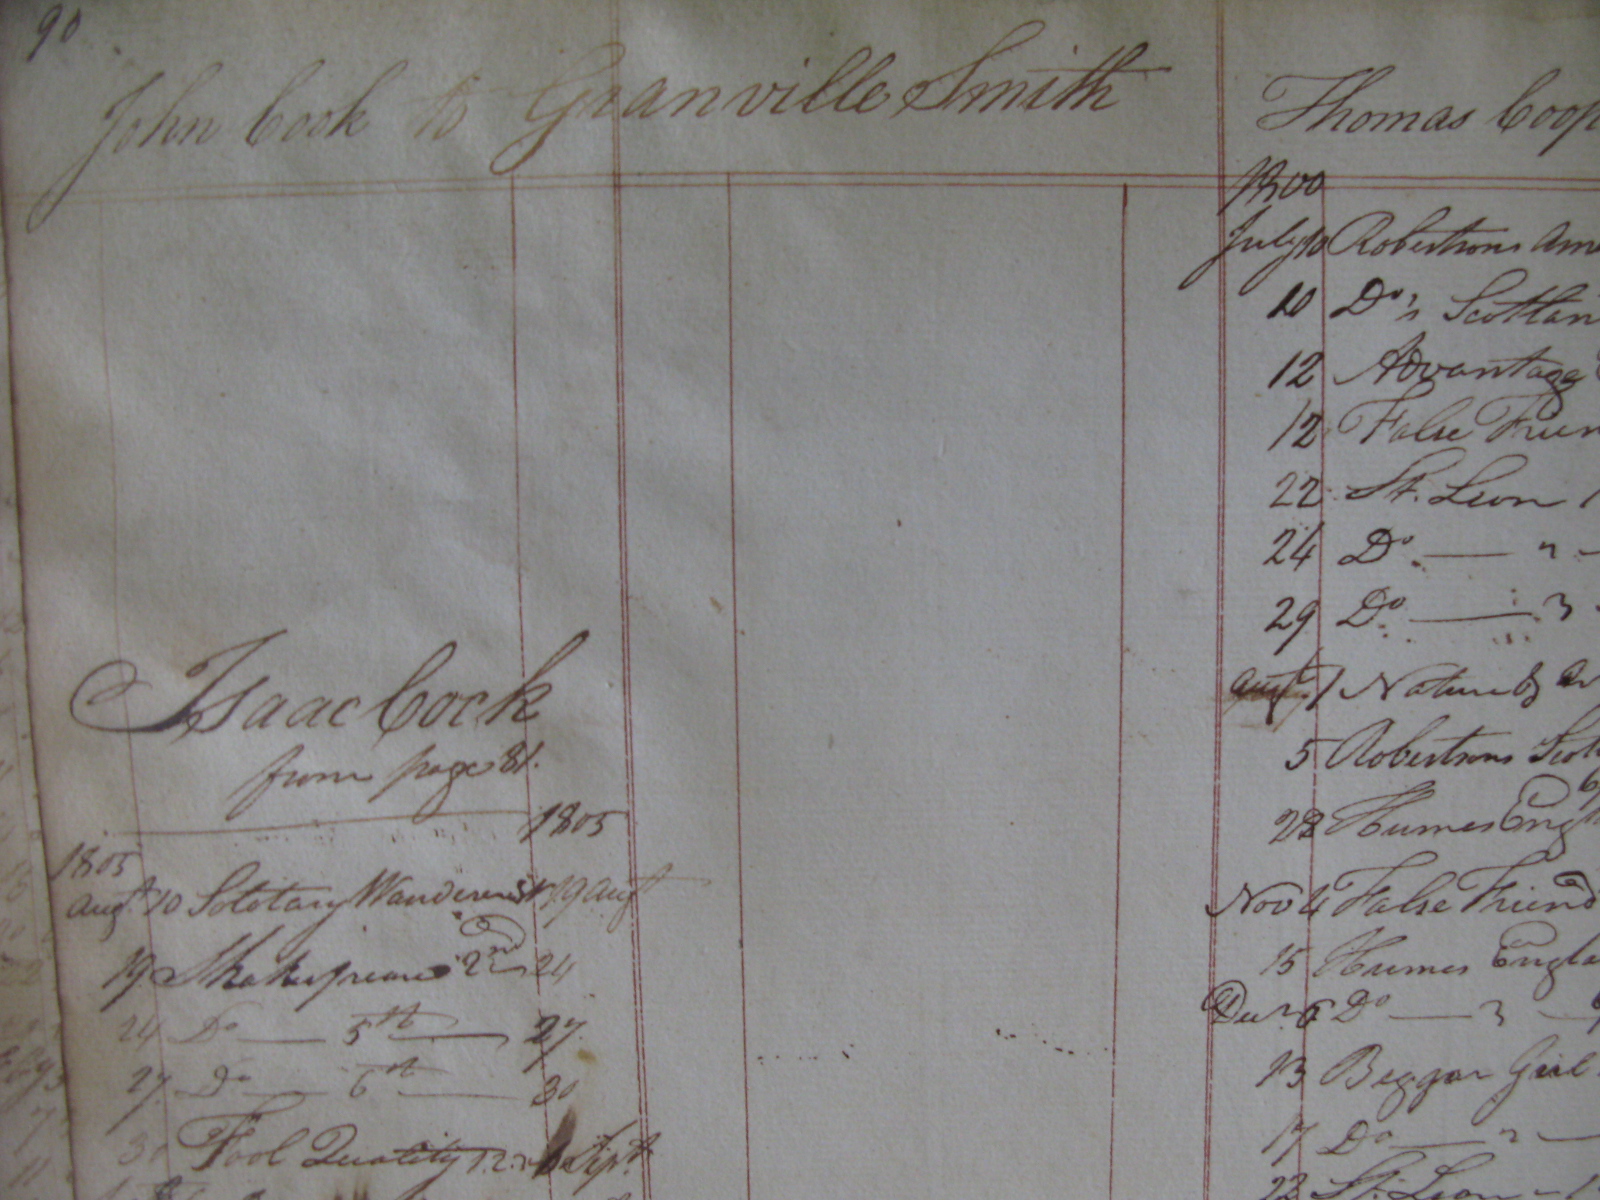 90
John Cook to Granville Smith
Isaac Cock
from page 81.
1805
1805
Augt 10 Solotary Wanderer 19 Augt
19 Shakespeare 2nd 24
24 Do — 5th — 27
27 Do — 6th — 30
30 Fool Quality 1.2. Sept
Thomas Coop
1800
July 10 Robertsons Ame
10 Do's Scotlan
12 Advantage
12 False Frien
22 St. Leon 1
24 Do — " —
29 Do — 3
Augt 1 Nature &
5 Robertsons Scot
28 Humes Eng
Nov 4 False Friend
15 Humes Engla
Do — 3
13 Beggar Girl
17 Do — " —
22 St. Leon